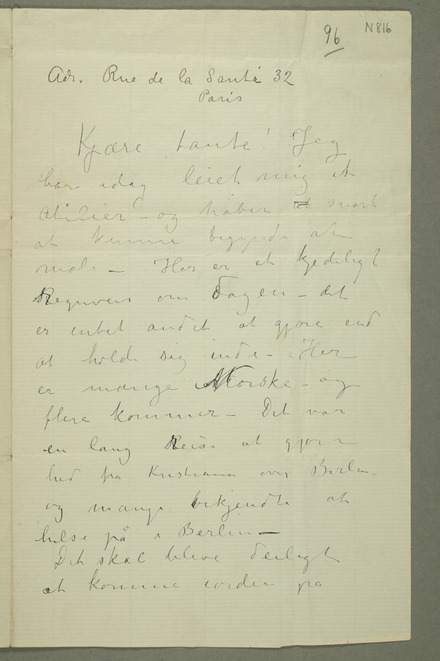 96
N 816
Adr. Rue de la Santé 32
Paris
Kjære tante! Jeg
har idag leiet mig et
atilier – og håber snart
at kunne begynde at
male – Her er et kjedeligt
Regnveir om Dagen – det
er intet andet at gjøre end
at holde sig inde – Her
er mange Norske – og
flere kommer – Det var
en lang Reise at gjøre
hid fra Kristiania over Berlin
og mange bekjendte at
hilse på i Berlin –
Det skal blive deiligt
at komme iorden på